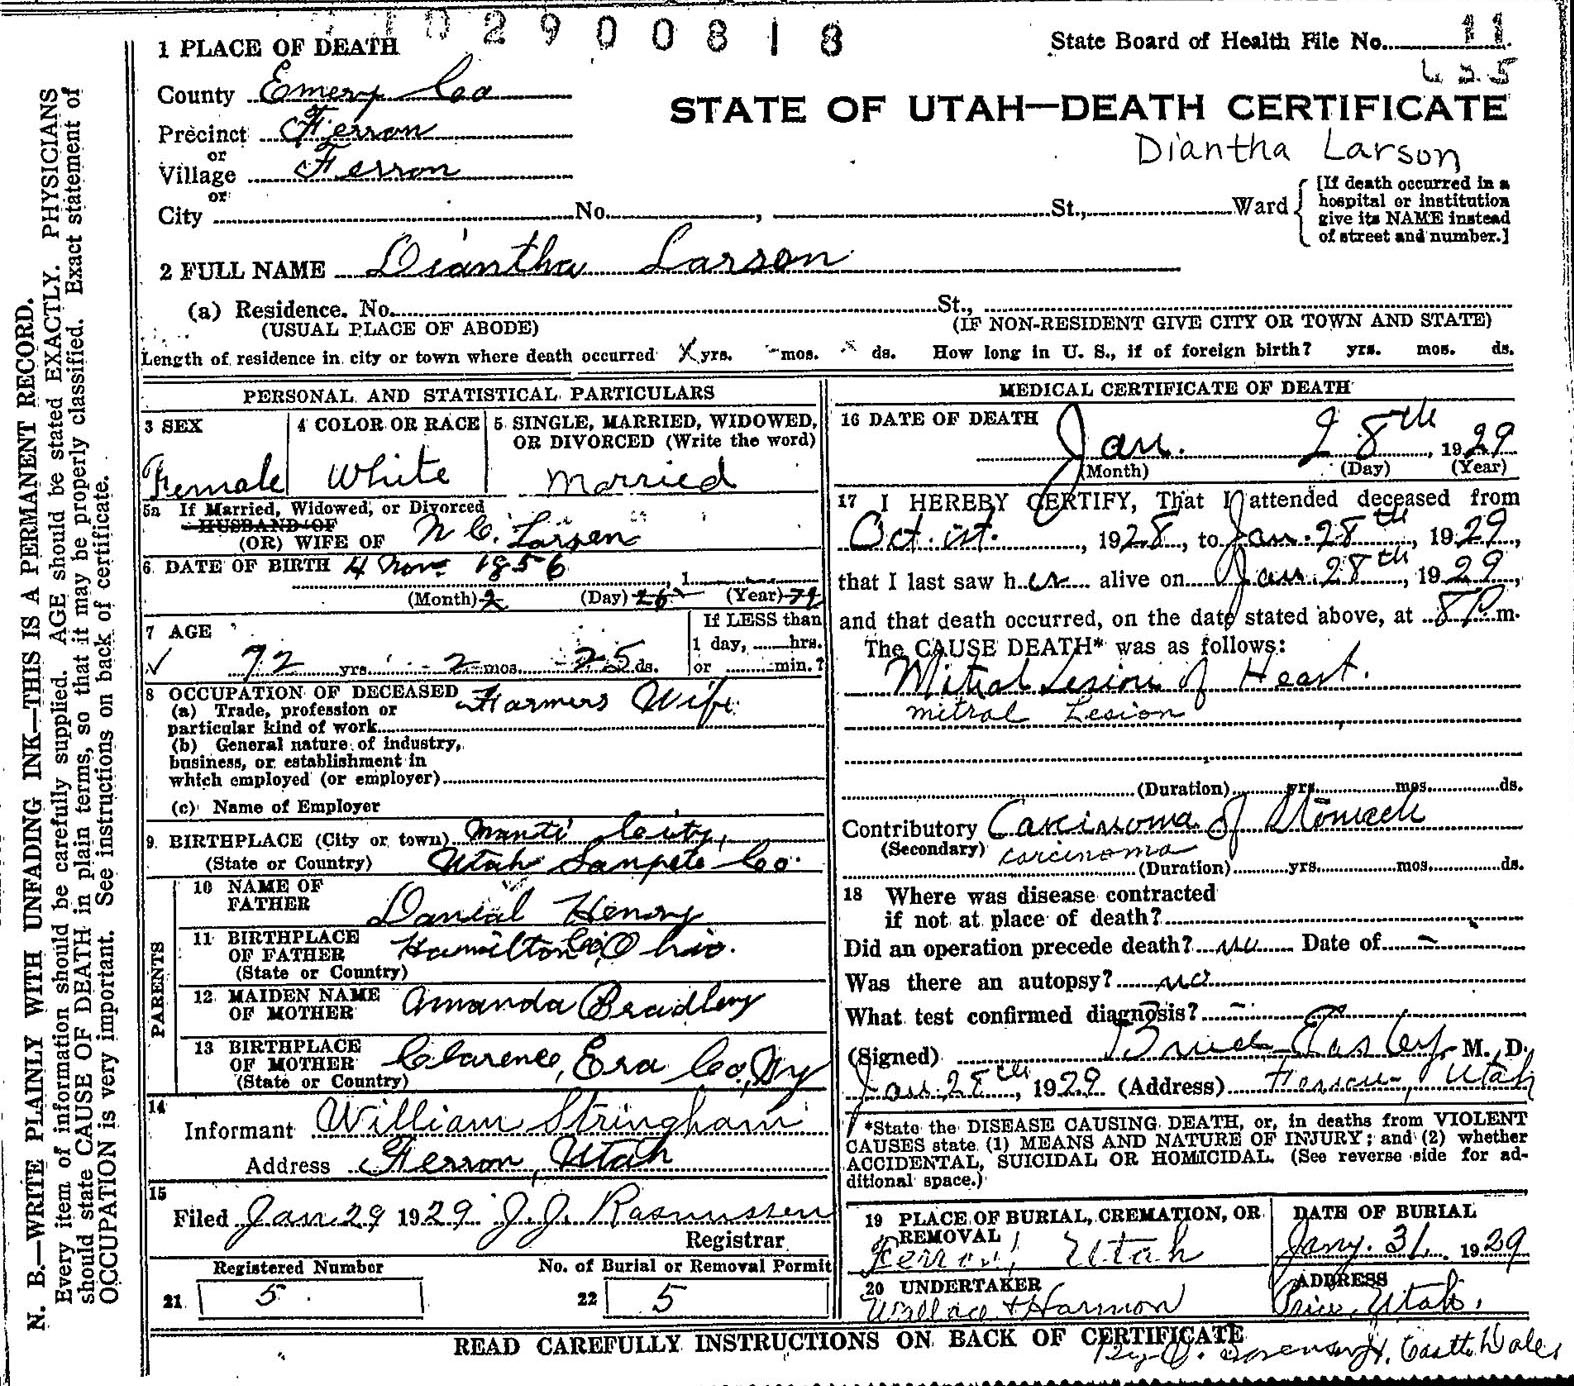 102900818
State Board of Health File No. 11
635
1 PLACE OF DEATH
County Emery Co
STATE OF UTAH—DEATH CERTIFICATE
Precinct Ferron
Diantha Larson
or
Village Ferron
or
City No. , St., Ward
[If death occurred in a hospital or institution give its NAME instead of street and number.]
2 FULL NAME Diantha Larson
(a) Residence. No. St.,
(USUAL PLACE OF ABODE) (IF NON-RESIDENT GIVE CITY OR TOWN AND STATE)
Length of residence in city or town where death occurred X yrs. - mos. x ds. How long in U. S., if of foreign birth? yrs. mos. ds.
PERSONAL AND STATISTICAL PARTICULARS
3 SEX
Female
4 COLOR OR RACE
White
5 SINGLE, MARRIED, WIDOWED,
OR DIVORCED (Write the word)
Married
5a If Married, Widowed, or Divorced
HUSBAND OF
(OR) WIFE OF N C. Larsen
6 DATE OF BIRTH 4 Nov. 1856 , 1
(Month) 2 (Day) 26 (Year) 72
7 AGE
✓ 72 yrs. - 2 mos. - 25 ds.
If LESS than
1 day, hrs.
or min.?
8 OCCUPATION OF DECEASED Farmers Wife
(a) Trade, profession or
particular kind of work
(b) General nature of industry,
business, or establishment in
which employed (or employer)
(c) Name of Employer
9 BIRTHPLACE (City or town) Manti City,
(State or Country) Utah Sanpete Co.
PARENTS
10 NAME OF
FATHER Danial Henry
11 BIRTHPLACE
OF FATHER Hamilton Co, Ohio.
(State or Country)
12 MAIDEN NAME
OF MOTHER Amanda Bradley
13 BIRTHPLACE
OF MOTHER Clarence, Era Co, Ny
(State or Country)
14
Informant William Stringham
Address Ferron, Utah
15
Filed Jan 29 1929 J. J. Rasmussen
Registrar
Registered Number No. of Burial or Removal Permit
21 5 22 5
MEDICAL CERTIFICATE OF DEATH
16 DATE OF DEATH
Jan. 28th, 1929
(Month) (Day) (Year)
17 I HEREBY CERTIFY, That I attended deceased from
Oct. 1st. , 1928, to Jan. 28th, 1929,
that I last saw her alive on Jan. 28th, 1929,
and that death occurred, on the date stated above, at 8 P. m.
The CAUSE DEATH* was as follows:
Mitral Lesion of Heart.
mitral Lesion
(Duration) yrs. mos. ds.
Contributory Carcinoma of Stomach
(Secondary) carcinoma
(Duration) yrs. mos. ds.
18 Where was disease contracted
if not at place of death?
Did an operation precede death? no Date of -
Was there an autopsy? no
What test confirmed diagnosis? -
(Signed) Bruce Easley, M. D.
Jan 28th, 1929 (Address) Ferron, Utah
*State the DISEASE CAUSING DEATH, or, in deaths from VIOLENT
CAUSES state (1) MEANS AND NATURE OF INJURY; and (2) whether
ACCIDENTAL, SUICIDAL OR HOMICIDAL. (See reverse side for ad-
ditional space.)
19 PLACE OF BURIAL, CREMATION, OR
REMOVAL
Ferron, Utah
DATE OF BURIAL
Jany. 31 1929
20 UNDERTAKER
Wallace & Harmon
ADDRESS
Price, Utah.
READ CAREFULLY INSTRUCTIONS ON BACK OF CERTIFICATE
Castle Dale
N. B.—WRITE PLAINLY WITH UNFADING INK—THIS IS A PERMANENT RECORD.
Every item of information should be carefully supplied. AGE should be stated EXACTLY. PHYSICIANS
should state CAUSE OF DEATH in plain terms, so that it may be properly classified. Exact statement of
OCCUPATION is very important. See instructions on back of certificate.